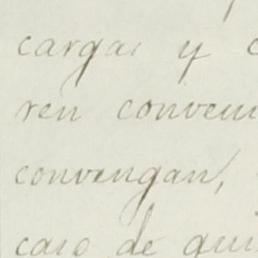 cargas y
ren conveni
convengan,
caso de qui